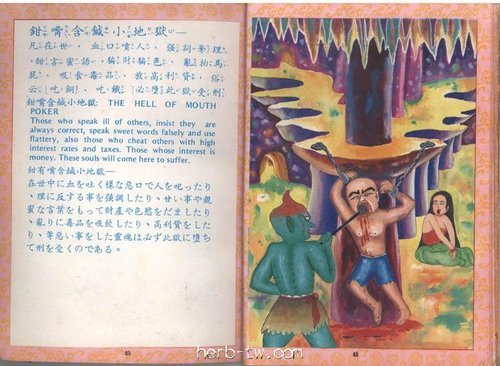 鉗嘴含鍼小地獄—
凡在世,血口噴人、強詞奪理
、甜言蜜語、騙財騙色、亂拍馬
屁、吸食毒品、放高利貸、俗
云吃銅、吃鐵 必墮此獄受刑
鉗嘴含鍼小地獄 THE HELL OF MOUTH
POKER
Those who speak ill of others, insist they are
always correct, speak sweet words falsely and use
flattery, also those who cheat others with high
interest rates and taxes. Those whose interest is
money. These souls will come here to suffer.
鉗有嘴含鍼小地獄—
在世中に血を吐く様な悪口で人を叱ったり
、理に反する事を強調したり、甘い事や親
蜜な言葉をもって財産や色慾をだましたり
、亂りに毒品を吸飲したり、高利貸をした
り、等惡い事をした靈魂は必ず此獄に堕ち
て刑を受くのである。
49
48
herb-tw.com